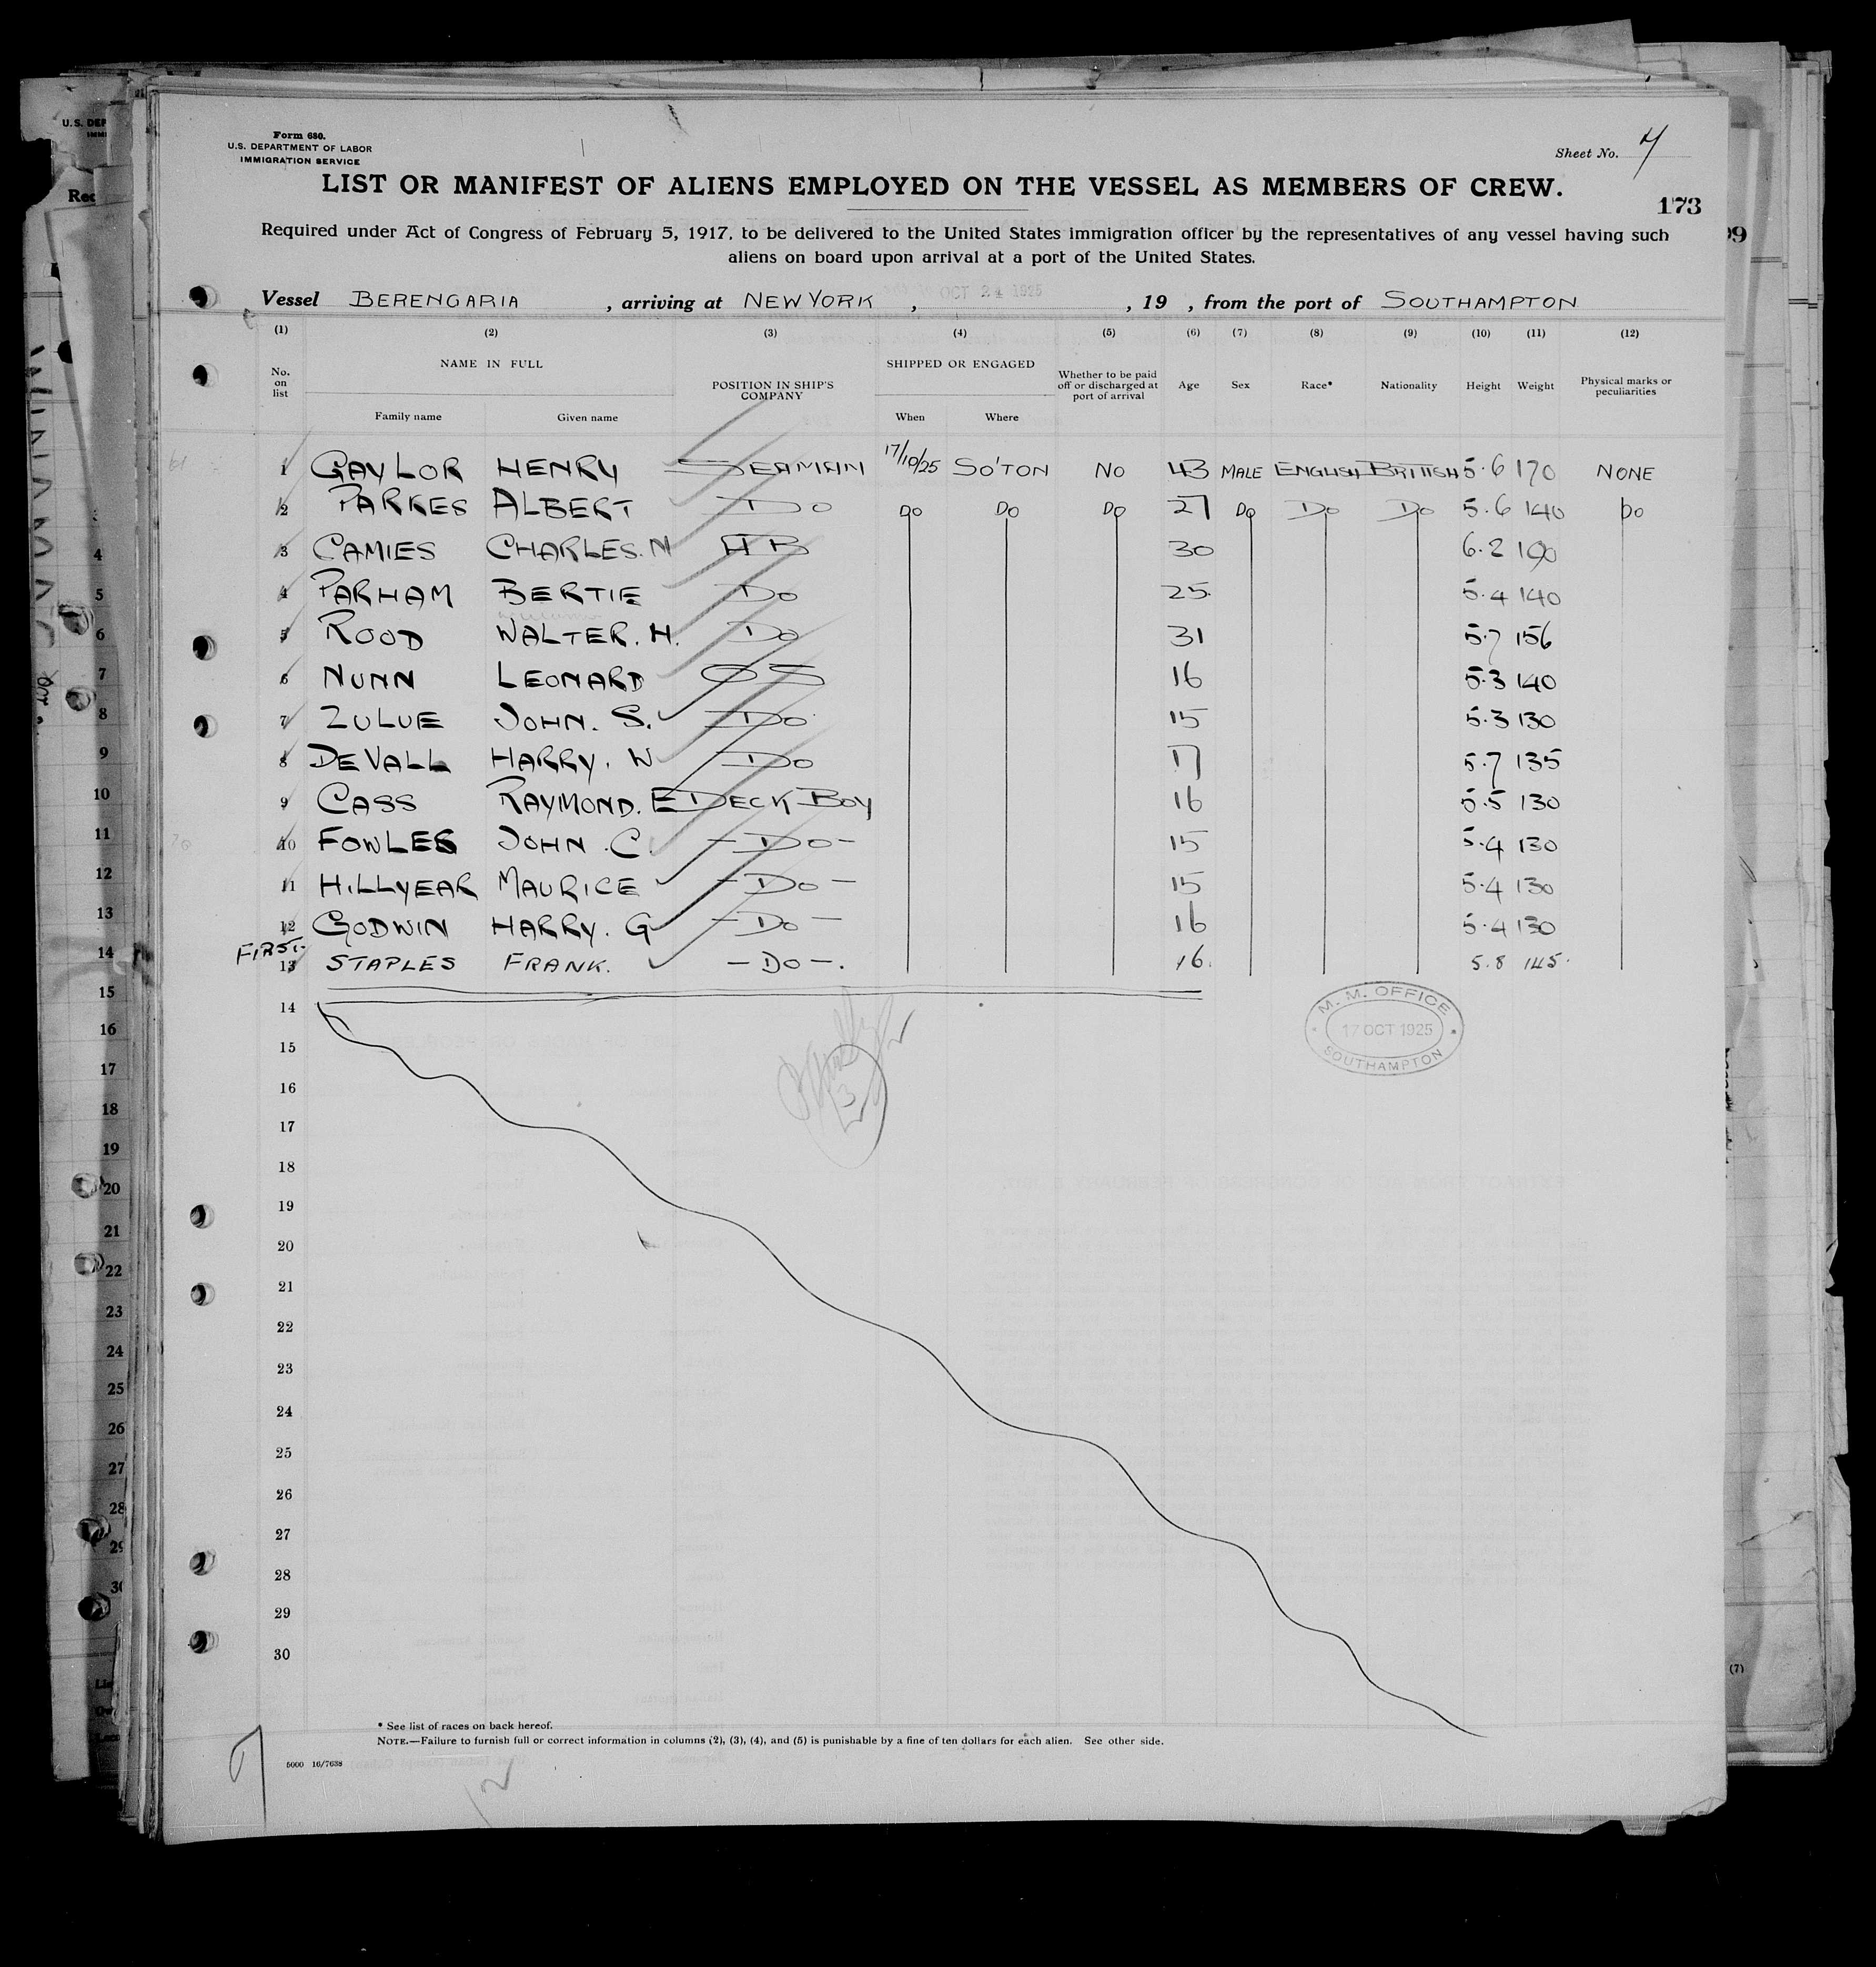 Form 680.
U.S. DEPARTMENT OF LABOR
IMMIGRATION SERVICE
Sheet No. 4
LIST OR MANIFEST OF ALIENS EMPLOYED ON THE VESSEL AS MEMBERS OF CREW.
173
Required under Act of Congress of February 5, 1917, to be delivered to the United States immigration officer by the representatives of any vessel having such
aliens on board upon arrival at a port of the United States.
Vessel BERENGARIA, arriving at NEW YORK, OCT 24 1925, 19 , from the port of SOUTHAMPTON
(1) (2) (3) (4) (5) (6) (7) (8) (9) (10) (11) (12)
No. on list NAME IN FULL Family name Given name POSITION IN SHIP'S COMPANY SHIPPED OR ENGAGED When Where Whether to be paid off or discharged at port of arrival Age Sex Race* Nationality Height Weight Physical marks or peculiarities
1 GAYLOR HENRY SEAMAN 17/10/25 SO'TON NO 43 MALE ENGLISH BRITISH 5.6 170 NONE
2 PARKES ALBERT DO DO DO DO 27 DO DO DO 5.6 140 DO
3 CAMIES CHARLES. N AB 30 6.2 190
4 PARHAM BERTIE DO 25 5.4 140
5 ROOD WALTER. H. DO 31 5.7 156
6 NUNN LEONARD OS 16 5.3 140
7 ZULUE JOHN. S. DO 15 5.3 130
8 DEVALL HARRY. W DO 17 5.7 135
9 CASS RAYMOND. E DECK BOY 16 5.5 130
10 FOWLES JOHN. C. -DO- 15 5.4 130
11 HILLYEAR MAURICE -DO- 15 5.4 130
12 GODWIN HARRY. G -DO- 16 5.4 130
FIRST.
13 STAPLES FRANK. -DO-. 16. 5.8 145.
M. M. OFFICE
17 OCT 1925
SOUTHAMPTON
14
15
16
17
18
19
20
21
22
23
24
25
26
27
28
29
30
* See list of races on back hereof.
NOTE.—Failure to furnish full or correct information in columns (2), (3), (4), and (5) is punishable by a fine of ten dollars for each alien. See other side.
5000 16/7638